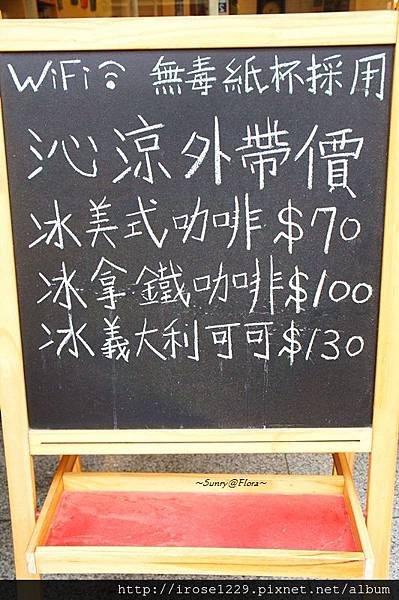 WiFi 無毒紙杯採用
沁涼外帶價
冰美式咖啡 $70
冰拿鐵咖啡 $100
冰義大利可可 $130
~Sunry@Flora~
http://irose1229.pixnet.net/album